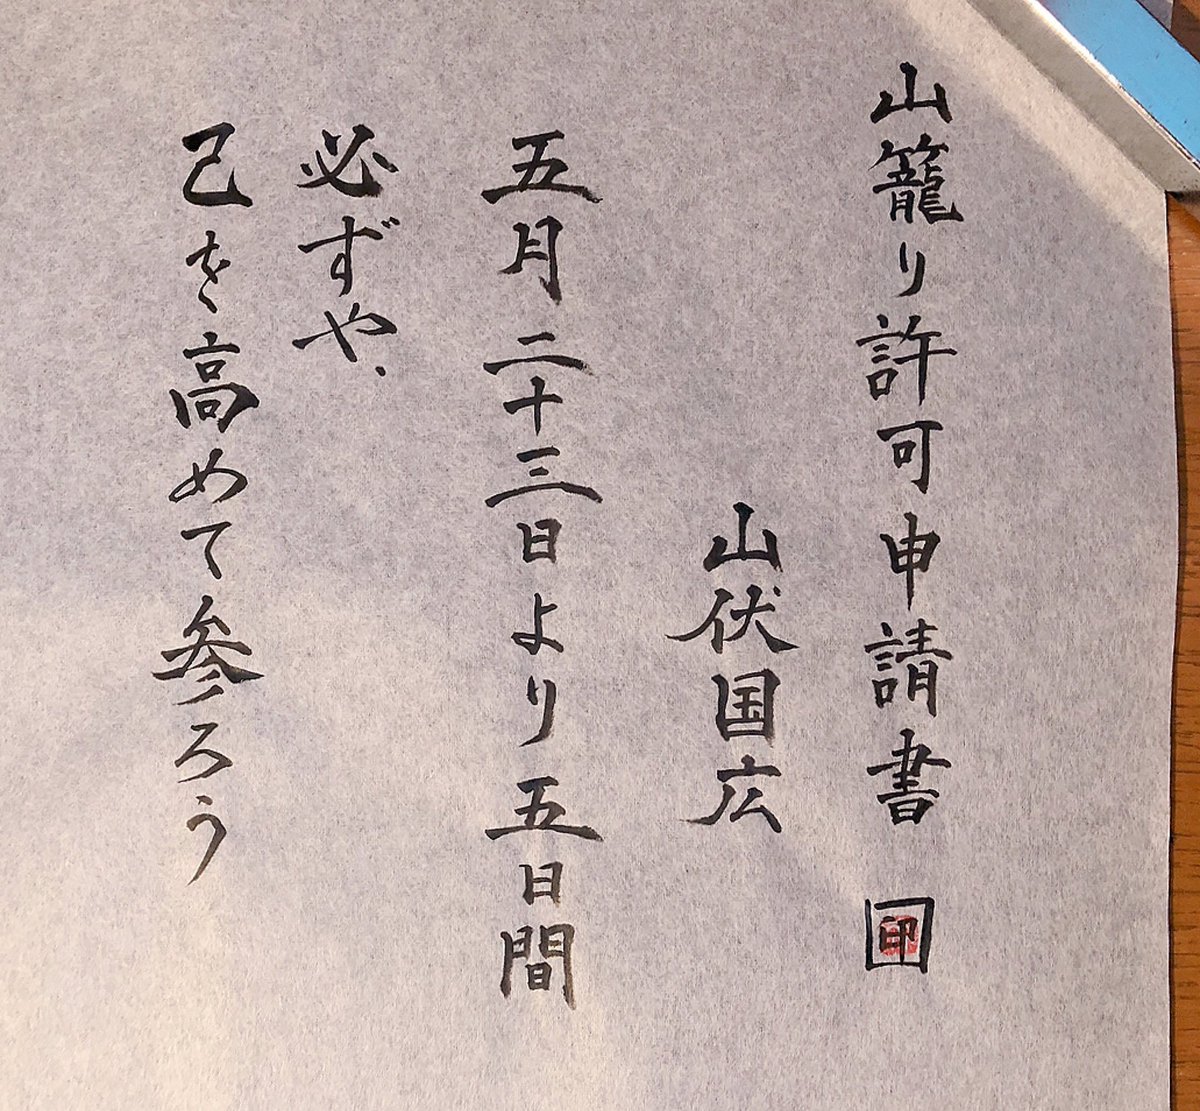 山籠り許可申請書 印
山伏国広
五月二十三日より五日間
必ずや、
己を高めて参ろう